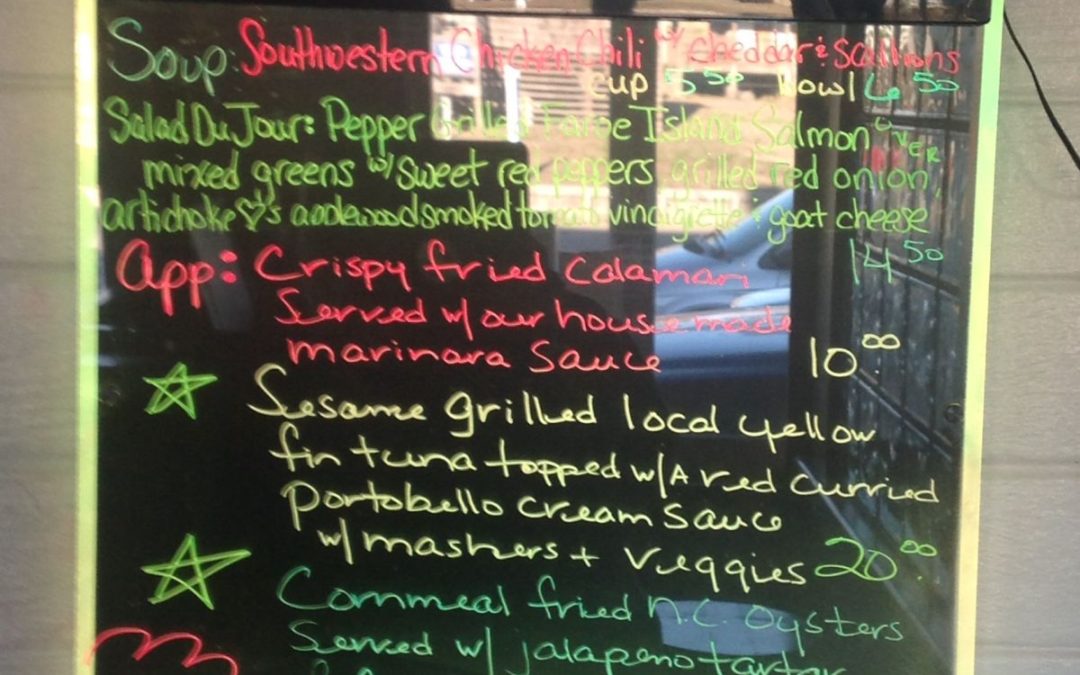 Soup: Southwestern Chicken Chili w/ cheddar & scallions
cup 5 50 bowl 6 50
Salad Du Jour: Pepper Grilled Faroe Island Salmon over
mixed greens w/ sweet red peppers, grilled red onion,
artichoke ♡'s applewood smoked tomato vinaigrette & goat cheese
14 50
App: Crispy fried Calamari
Served w/ our house made
marinara sauce 10.00
Sesame grilled local yellow
fin tuna topped w/ A red curried
portobello cream sauce
w/ mashers + veggies 20.00
Cornmeal fried N.C. Oysters
Served w/ jalapeno tartar